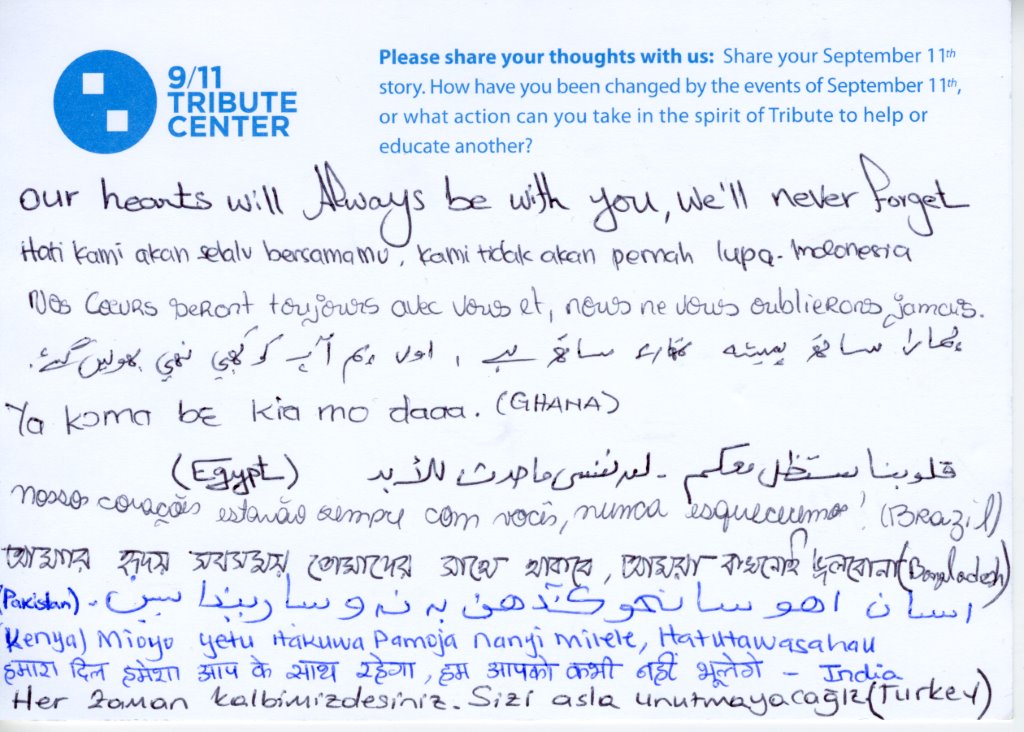 9/11
TRIBUTE
CENTER
Please share your thoughts with us: Share your September 11th
story. How have you been changed by the events of September 11th,
or what action can you take in the spirit of Tribute to help or
educate another?
our hearts will Always be with you, we'll never forget
Hati kami akan selalu bersamamu, kami tidak akan pernah lupa. Indonesia
Nos Cœurs seront toujours avec vous et, nous ne vous oublierons jamais.
ہمارا ساتھ ہمیشہ تمہارے ساتھ ہے ، اور ہم آپ کو کبھی نہیں بھولیں گے.
Ya koma bɛ kia mo daaa. (GHANA)
(Egypt) قلوبنا ستظل معكم - لن ننسى ما حدث للأبد
nosso corações estarão sempre com vocês, nunca esqueceremos! (BRAZIL)
আমার হৃদয় সবসময় তোমাদের সাথে থাকবে, আমরা কখনোই ভুলবোনা (Bangladesh)
(Pakistan) -
(Kenya) Mioyo yetu itakuwa Pamoja nanyi milele, Hatutawasahau
हमारा दिल हमेशा आप के साथ रहेगा, हम आपको कभी नहीं भूलेगे - India
Her zaman kalbimizdesiniz. Sizi asla unutmayacağız (Turkey)